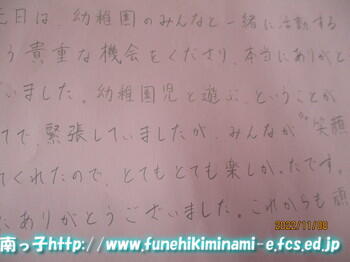 元日は、幼稚園のみんなと一緒に活動する
う貴重な機会をくださり、本当にありがと
いました。幼稚園児と遊ぶ、ということが
てで、緊張していましたが、みんなが"笑顔
てくれたので、とてもとても楽しかったです。
にありがとうございました。これからも頑
2022/11/08
南っ子http://www.funehikiminami-e.fcs.ed.jp